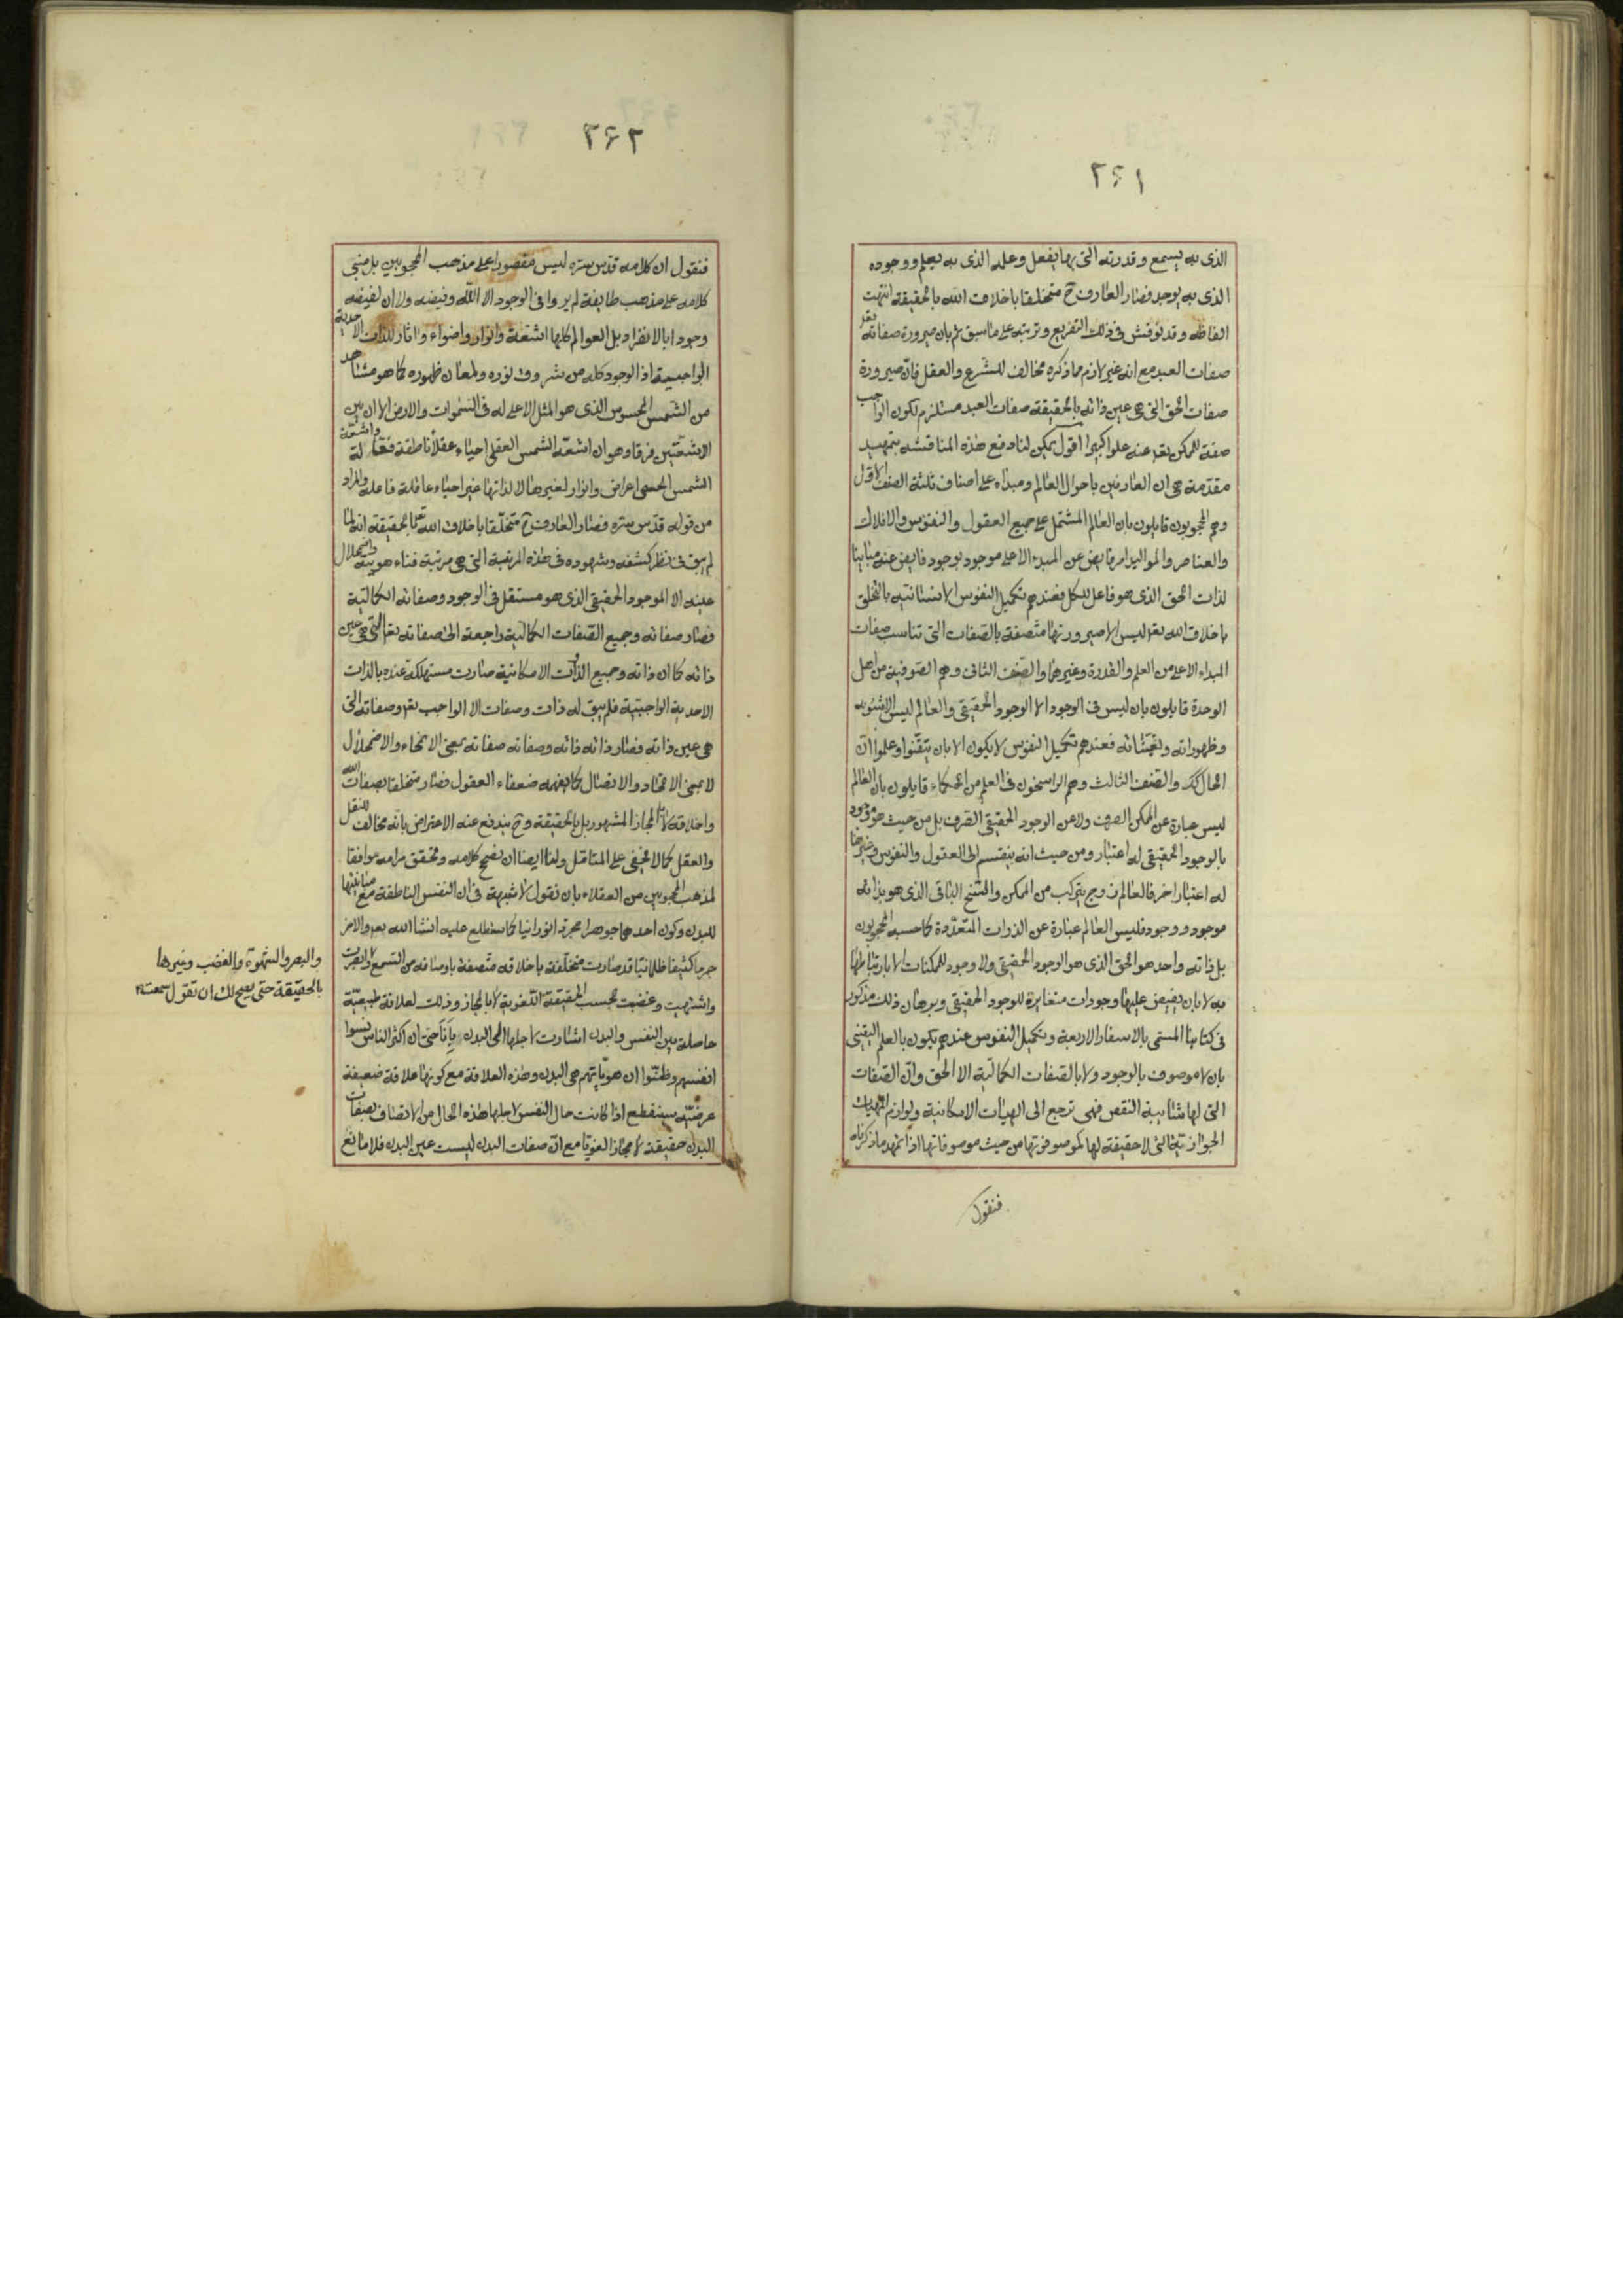 ٢٦١
الذى به يسمع وقدرته التى بها يفعل وعلمه الذى به يعلم ووجوده
الذى به يوجد فصار العارف ح متخلقا باخلاق الله بالحقيقة انتهت
الفاظه وقد نوقش فى ذلك التفريع وترتبه على ما سبق ثم بان صيرورة صفاته تعر
صفات العبد مع انه غير لازم مما ذكره مخالف للشرع والعقل فان صيرورة
صفات الحق التى هى عين ذاته بالحقيقة صفات العبد مستلزم لكون الواجب
صفة للممكن تعر عنه علوا كبيرا اقول يمكن لنا دفع هذه المناقشه بتمهيد
مقدّمة هى ان العارفين باحوال العالم ومبداه على اصناف ثلثة الصنف الاول
وهم المحجوبون قايلون بان العالم المشتمل على جميع العقول والنفوس والافلاك
والعناصر والمواليد امر فايض عن المبدء الاعلى موجود بوجود فايض عنه مباينا
لذات الحق الذى هو فاعل للكل فعندهم تكميل النفوس الانسانتيه بالتخلق
باخلاق الله تعر ليس الا صيرورتها متصفة بالصفات التى تناسب صفات
المبداء الاعلى من العلم والقدرة وغيرهما والصنف الثانى وهم الصوفية من اهل
الوحدة قايلون بان ليس فى الوجود الا الوجود الحقيقى والعالم ليس الا شئونه
وظهوراته وتعيناته فعندهم تكميل النفوس لا يكون الا بان يتقنوا وعلموا ان
الحال كك والصنف الثالث وهم الراسخون فى العلم من الحكماء قايلون بان العالم
ليس عبارة عن الممكن الصرف ولا عن الوجود الحقيقى الصرف بل من حيث هو موجود
بالوجود الحقيقى له اعتبار ومن حيث انه ينقسم الى العقول والنفوس وغيرها
له اعتبار اخر فالعالم زوج يتركب من الممكن والسنخ الباقى الذى هو بذاته
موجود ووجود فليس العالم عبارة عن الذوات المتعدّدة كما حسبه المحجوبون
بل ذاته واحد هو الحق الذى هو الوجود الحقيقى ولا وجود للممكنات الا بارتباطها
به لا بان يفيض عليها وجودات مغايرة للوجود الحقيقى وبرهان ذلك مذكور
فى كتابنا المسمى بالاسفار الاربعة وتكميل النفوس عندهم يكون بالعلم اليقينى
بان لا موصوف بالوجود ولا بالصفات الكمالية الا الحق وان الصفات
التى لها شائبة النقص فهى ترجع الى الهيئات الامكانية ولوازم المهيات
الجوازية التى لا حقيقة لها كموصوفوتها من حيث موصوفاتها اذا تمهد ما ذكرناه
فنقول
٢٦٢
فنقول ان كلامه قدّس سره ليس مقصورا على مذهب المحجوبين بل مبنى
كلامه على مذهب طايفة لم يروا فى الوجود الا الله وفيضه ولا ان لفيضه
وجودا بالانفراد بل العوالم كلها اشعة وانوار واضواء واثار للذات الاحدية
الواجبية اذ الوجود كله من شروق نوره ولمعان ظهوره كما هو مشاهد
من الشمس المحسوس الذى هو المثل الاعلى له فى السموات والارض الا ان بين
الاشعتين فرقا وهو ان اشعة الشمس العقلى احياء عقلاء ناطقة فعالة واشعة
الشمس الحسى اعراض وانوار لغيرها لا لذاتها غير احياء وعاقلة فاعلة والمراد
من قوله قدّس سره فصار العارف ح متخلقا باخلاق الله تعر بالحقيقة انه لما
لم يبق فى نظر كشفه وشهوده فى هذه المرتبة التى هى مرتبة فناء هويته واضمحلال
عينه الا الموجود الحقيقى الذى هو مستقل فى الوجود وصفاته الكمالية
فصار صفاته وجميع الصفات الكمالية راجعة الى صفاته تعر التى هى عين
ذاته كما ان ذاته وجميع الذوات الامكانية صارت مستهلكة عنده بالذات
الاحدية الواجبية فلم يبق له ذات وصفات الا الواجب تعر وصفاته التى
هى عين ذاته فصار ذاته ذاته وصفاته صفاته بمعنى الانمحاء والاضمحلال
لا بمعنى الاتحاد والاتصال كما يفهمه ضعفاء العقول فصار متخلقا بصفات الله
واخلاقه لا بالمجاز المشهور بل بالحقيقة وح يندفع عنه الاعتراض بانه مخالف للنقل
والعقل كما لا يخفى على المتامّل ولنا ايضا ان نصحح كلامه ونحقق مرامه موافقا
لمذهب المحجوبين من العقلاء بان نقول لا شبهة فى ان النفس الناطقة مع مباينتها
للبدن وكون احدهما جوهرا مجردا نورانيا كما ستطلع عليه انشا الله تعر والاخر
جرما كثيفا ظلمانيا قد صارت متخلقة باخلاقه متصفة باوصافه من السمع وابصرت
واشتهيت وغضبت بحسب الحقيقة اللغوية لا بالمجاز وذلك لعلاقة طبيعية
حاصلة بين النفس والبدن اشارت لاجلها الى البدن بانا حتى ان اكثر الناس نسوا
انفسهم وظنوا ان هوياتهم هى البدن وهذه العلاقة مع كونها علاقة ضعيفة
عرضيّة سينقطع اذا كانت حال النفس لاجلها هذه الحال من الاتصاف بصفات
البدن حقيقة لا مجازا لغويا مع ان صفات البدن ليست عين البدن فلا مانع
والبصر والشهوة والغضب وغيرها
بالحقيقة حتى يصح لك ان تقول سمعت